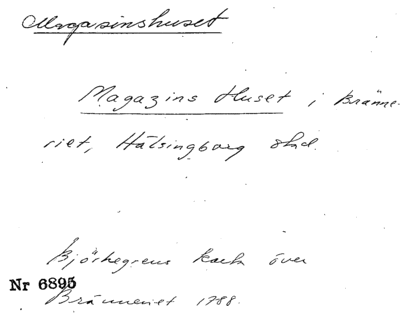 Magasinshuset
Magazins Huset i Bränne-
riet, Hälsingborg stad.
Björkegrens karta över
Nr 6895
Bränneriet 1788.